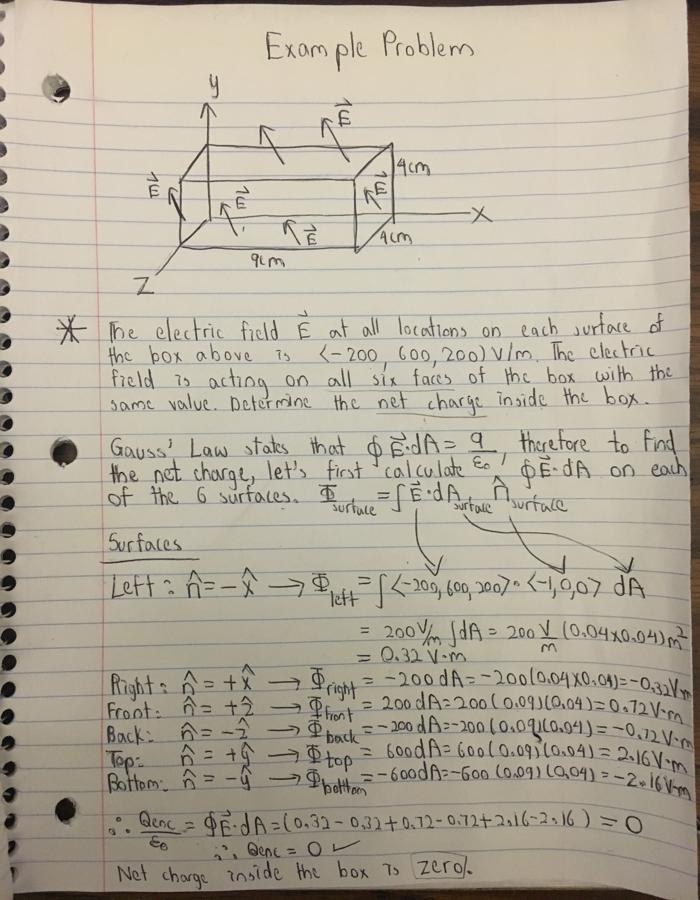 Example Problem
y
E⃗
4cm
E⃗
E⃗
E⃗
E⃗
X
4cm
9cm
Z
* The electric field E⃗ at all locations on each surface of
the box above is <-200, 600, 200> V/m. The electric
field is acting on all six faces of the box with the
same value. Determine the net charge inside the box.
Gauss' Law states that ∮E⃗·dA = q/ε₀, therefore to find
the net charge, let's first calculate ∮E⃗·dA on each
of the 6 surfaces. Φ_surface = ∫E⃗·dA_surface n̂_surface
Surfaces
Left: n̂ = -x̂ → Φ_left = ∫<-200, 600, 200>·<-1,0,0> dA
= 200 V/m ∫dA = 200 V/m (0.04×0.04)m²
= 0.32 V·m
Right: n̂ = +x̂ → Φ_right = -200dA = -200(0.04×0.04) = -0.32V·m
Front: n̂ = +ẑ → Φ_front = 200dA = 200(0.09)(0.04) = 0.72V·m
Back: n̂ = -ẑ → Φ_back = -200dA = -200(0.09)(0.04) = -0.72V·m
Top: n̂ = +ŷ → Φ_top = 600dA = 600(0.09)(0.04) = 2.16V·m
Bottom: n̂ = -ŷ → Φ_bottom = -600dA = -600(0.09)(0.04) = -2.16V·m
∴ Qenc/ε₀ = ∮E⃗·dA = (0.32-0.32+0.72-0.72+2.16-2.16) = 0
∴ Qenc = 0 ✓
Net charge inside the box is zero.